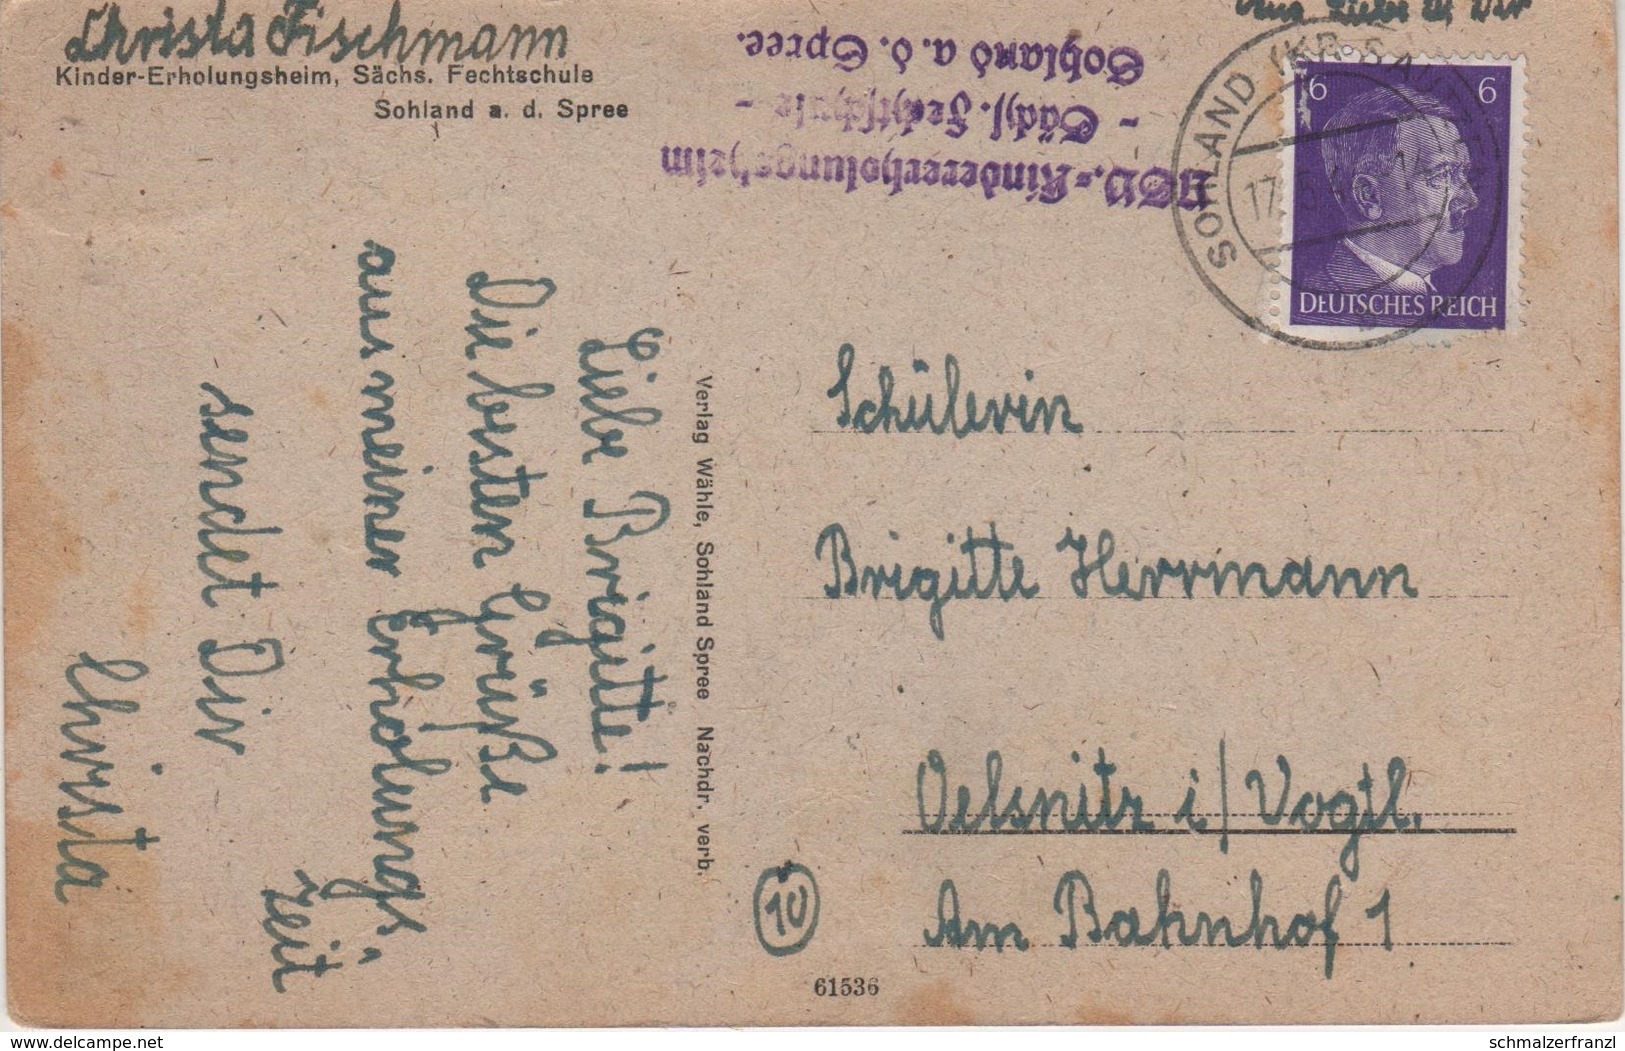 Christa Fischmann
Kinder-Erholungsheim, Sächs. Fechtschule
Sohland a. d. Spree
NSV.-Kindererholungsheim
- Sächs. Fechtschule -
Sohland a. d. Spree.
SOHLAND (KR. BAUTZEN)
17.5. 14
6 6
DEUTSCHES REICH
Liebe Brigitte!
Die besten Grüße
aus meiner Erholungs-
zeit
sendet Dir
Christa
Verlag Wähle, Sohland Spree Nachdr. verb.
Schülerin
Brigitte Herrmann
Oelsnitz i/Vogtl.
Am Bahnhof 1
10
61536
delcampe.net
schmalzerfranzl